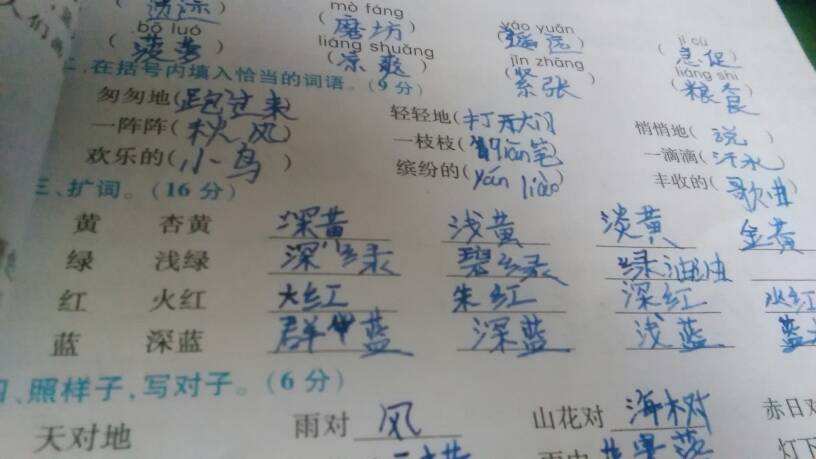 人们
mò fáng
bō luó yáo yuǎn jí cù
(菠萝) (磨坊) (遥远) (急促)
liáng shuǎng jǐn zhāng liáng shi
(凉爽) (紧张) (粮食)
二、在括号内填入恰当的词语。(9分)
匆匆地(跑过来) 轻轻地(打开大门) 悄悄地(说)
一阵阵(秋风) 一枝枝(铅笔) 一滴滴(汗水)
欢乐的(小鸟) 缤纷的(yán liào) 丰收的(歌曲)
三、扩词。(16分)
黄 杏黄 深黄 浅黄 淡黄 金黄
绿 浅绿 深绿 碧绿 绿油油
红 火红 大红 朱红 深红 水红
蓝 深蓝 蓝 深蓝 浅蓝
四、照样子,写对子。(6分)
天对地 雨对 风 山花对 海树 赤日对
灯下